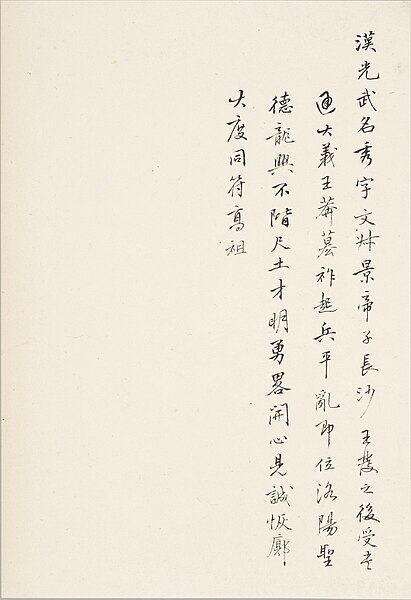 漢光武名秀字文叔景帝子長沙王發之後受書
通大義王莽墓祚起兵平亂即位洛陽聖
德龍興不階尺土才明勇畧開心見誠恢廓
大度同符高祖